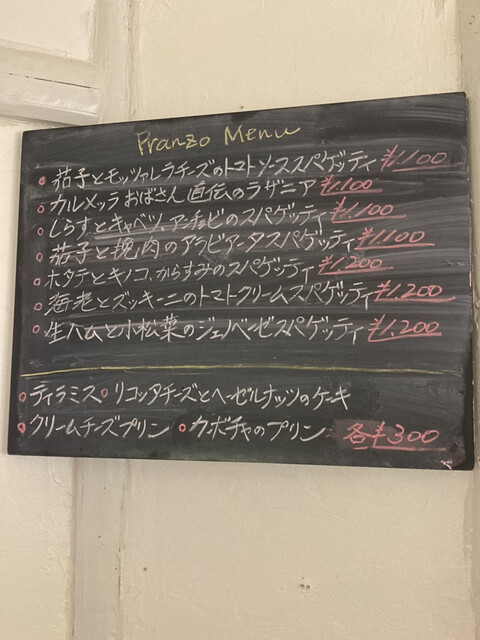 Pranzo Menu
○茄子とモッツァレラチーズのトマトソーススパゲッティ ¥1,100
○カルメッラおばさん直伝のラザニア ¥1,100
○しらすとキャベツ、アンチョビのスパゲッティ ¥1,100
○茄子と挽肉のアラビアータスパゲッティ ¥1,100
○ホタテとキノコ、からすみのスパゲッティ ¥1,200
○海老とズッキーニのトマトクリームスパゲッティ ¥1,200
○生ハムと小松菜のジェノベーゼスパゲッティ ¥1,200
○ティラミス ○リコッタチーズとヘーゼルナッツのケーキ
○クリームチーズプリン ○カボチャのプリン 各¥300